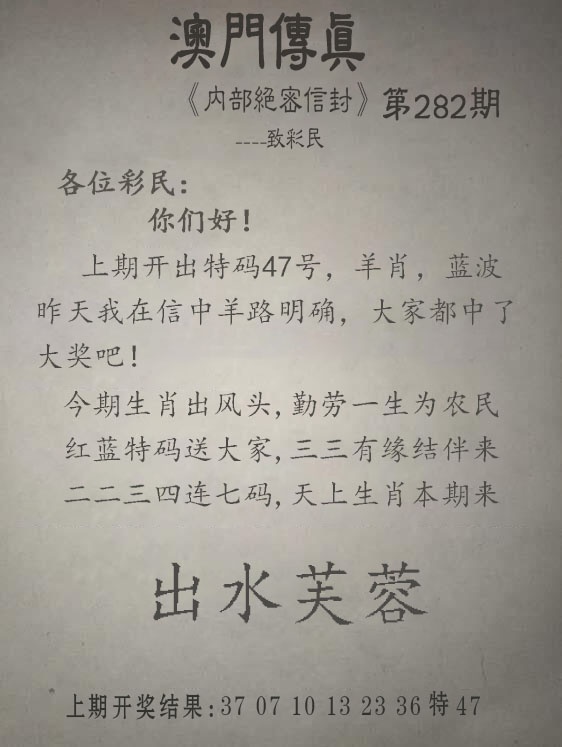 澳門傳真
《内部絕密信封》第282期
----致彩民
各位彩民:
你们好!
上期开出特码47号，羊肖，蓝波
昨天我在信中羊路明确，大家都中了
大奖吧!
今期生肖出风头,勤劳一生为农民
红蓝特码送大家,三三有缘结伴来
二二三四连七码,天上生肖本期来
出水芙蓉
上期开奖结果:37 07 10 13 23 36 特 47